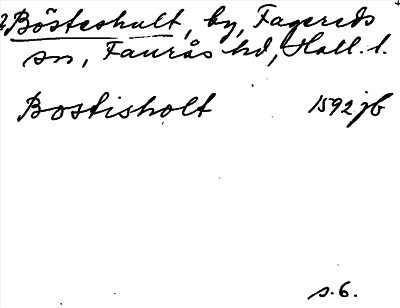 Bösteshult, by, Fagereds
sn, Faurås hd, Hall. l.
Bostisholt 1592 jb
s. 6.